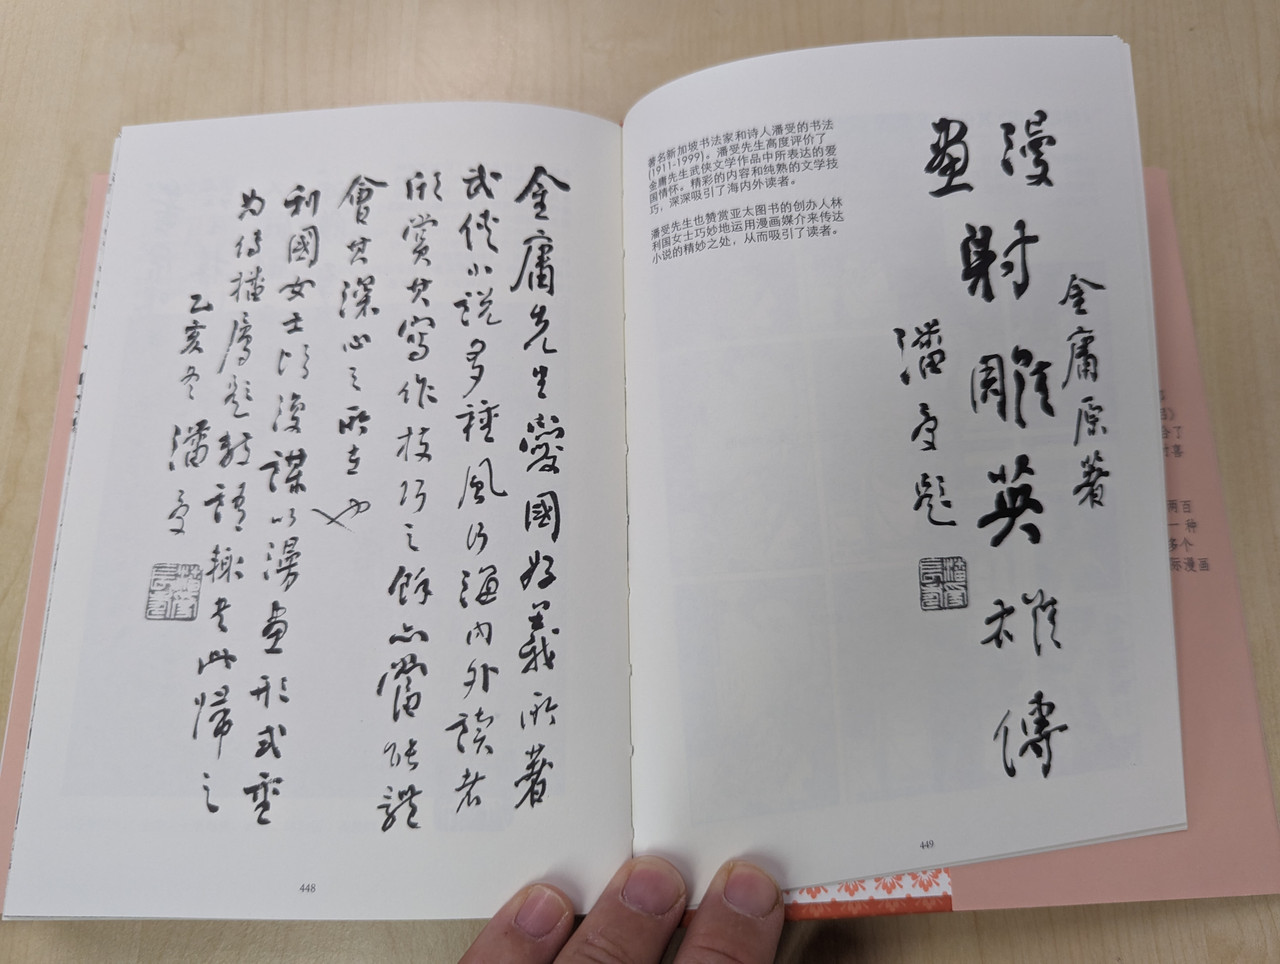 金庸先生愛國好義所著
武俠小說多種風行海內外讀者
欣賞其寫作技巧之餘亦當能體
會其深心之所在也
利國女士頃復謀以漫畫形式
為傳播屬題數語輒書此歸之
乙亥冬 潘受
448
著名新加坡书法家和诗人潘受的书法
(1911-1999)。潘受先生高度评价了
金庸先生武侠文学作品中所表达的爱
国情怀。精彩的内容和纯熟的文学技
巧，深深吸引了海内外读者。
潘受先生也赞赏亚太图书的创办人林
利国女士巧妙地运用漫画媒介来传达
小说的精妙之处，从而吸引了读者。
金庸原著
漫畫射雕英雄傳
潘受題
449
两百
一种
多个
际漫画